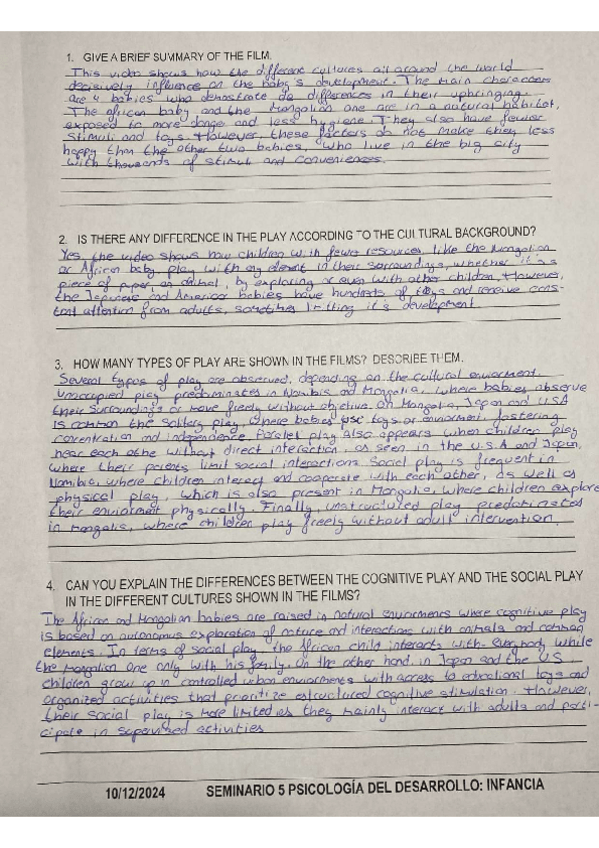 1. GIVE A BRIEF SUMMARY OF THE FILM.
This video shows how the different cultures all around the world
decisively influence on the baby's development. The main characters
are 4 babies who demostrate de differences in their upbringing.
The african baby and the Mongolian one are in a natural habitat,
exposed to more danger and less hygiene. They also have fewer
stimuli and toys. However, these factors do not make they less
happy than the other two babies, who live in the big city
with thousands of stimuli and conveniences.
2. IS THERE ANY DIFFERENCE IN THE PLAY ACCORDING TO THE CULTURAL BACKGROUND?
Yes, the video shows how children with fewer resources, like the Mongolian
or African baby play with any element in their surroundings, whether it is a
piece of paper, an animal, by exploring or even with other children. However,
the Japanese and American babies have hundreds of toys and receive cons-
tant attention from adults, it's development
3. HOW MANY TYPES OF PLAY ARE SHOWN IN THE FILMS? DESCRIBE THEM.
Several types of play are observed, depending on the cultural enviorment.
Unoccupied play predominates in Namibia and Mongolia, where babies observe
their surroundings or move freely without objetive. On Mongolia, Japan and USA
is common the solitary play, where babies use toys or enviorment, fostering
concentration and independence. Parallel play also appears when children play
near each othe without direct interaction, as seen in the U.S.A and Japan,
where their parents limit social interactions. Social play is frequent in
Namibia, where children interact and cooperate with each other, as well as
physical play, which is also present in Mongolia, where children explore
their enviorment physically. Finally, unstructured play predominates
in Mongolia, where children play freely without adult intervention.
4. CAN YOU EXPLAIN THE DIFFERENCES BETWEEN THE COGNITIVE PLAY AND THE SOCIAL PLAY
IN THE DIFFERENT CULTURES SHOWN IN THE FILMS?
The African and Mongolian babies are raised in natural enviorments where cognitive play
is based on autonomous exploration of nature and interactions with animals and common
elements. In terms of social play, the African child interacts with everybody while
the Mongolian one only with his family. On the other hand, in Japan and the US
children grow up in controlled urban enviorments with access to educational toys and
organized activities that prioritize estructured cognitive stimulation. However,
their social play is more limited as they mainly interact with adults and parti-
cipate in supervised activities
10/12/2024 SEMINARIO 5 PSICOLOGÍA DEL DESARROLLO: INFANCIA